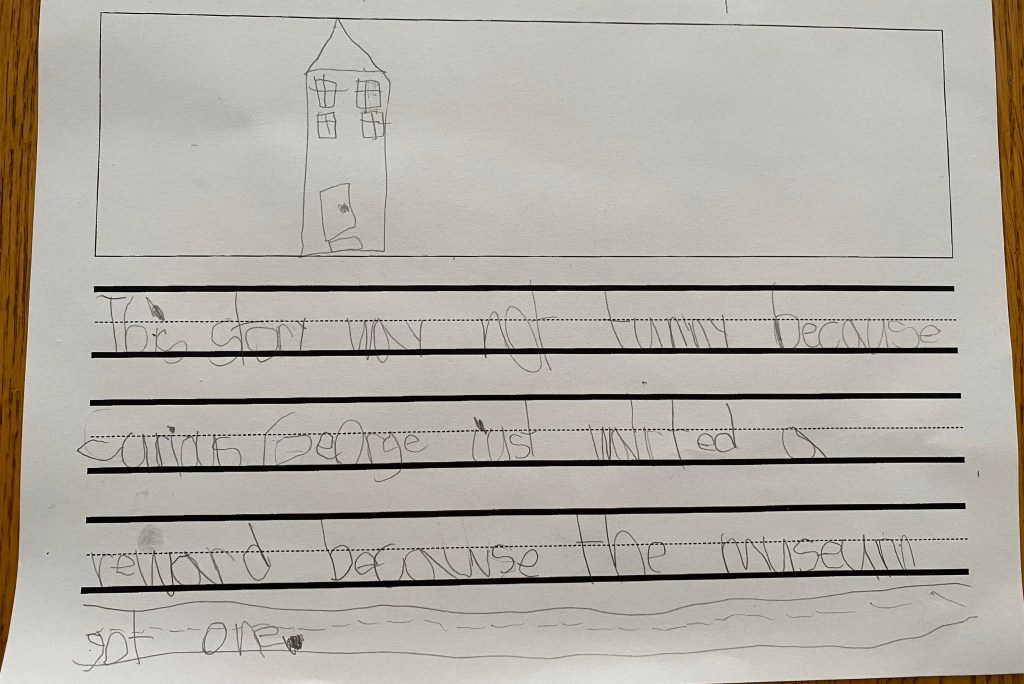 This story was not funny because
curius George just wanted a
reward because the museum
got one.